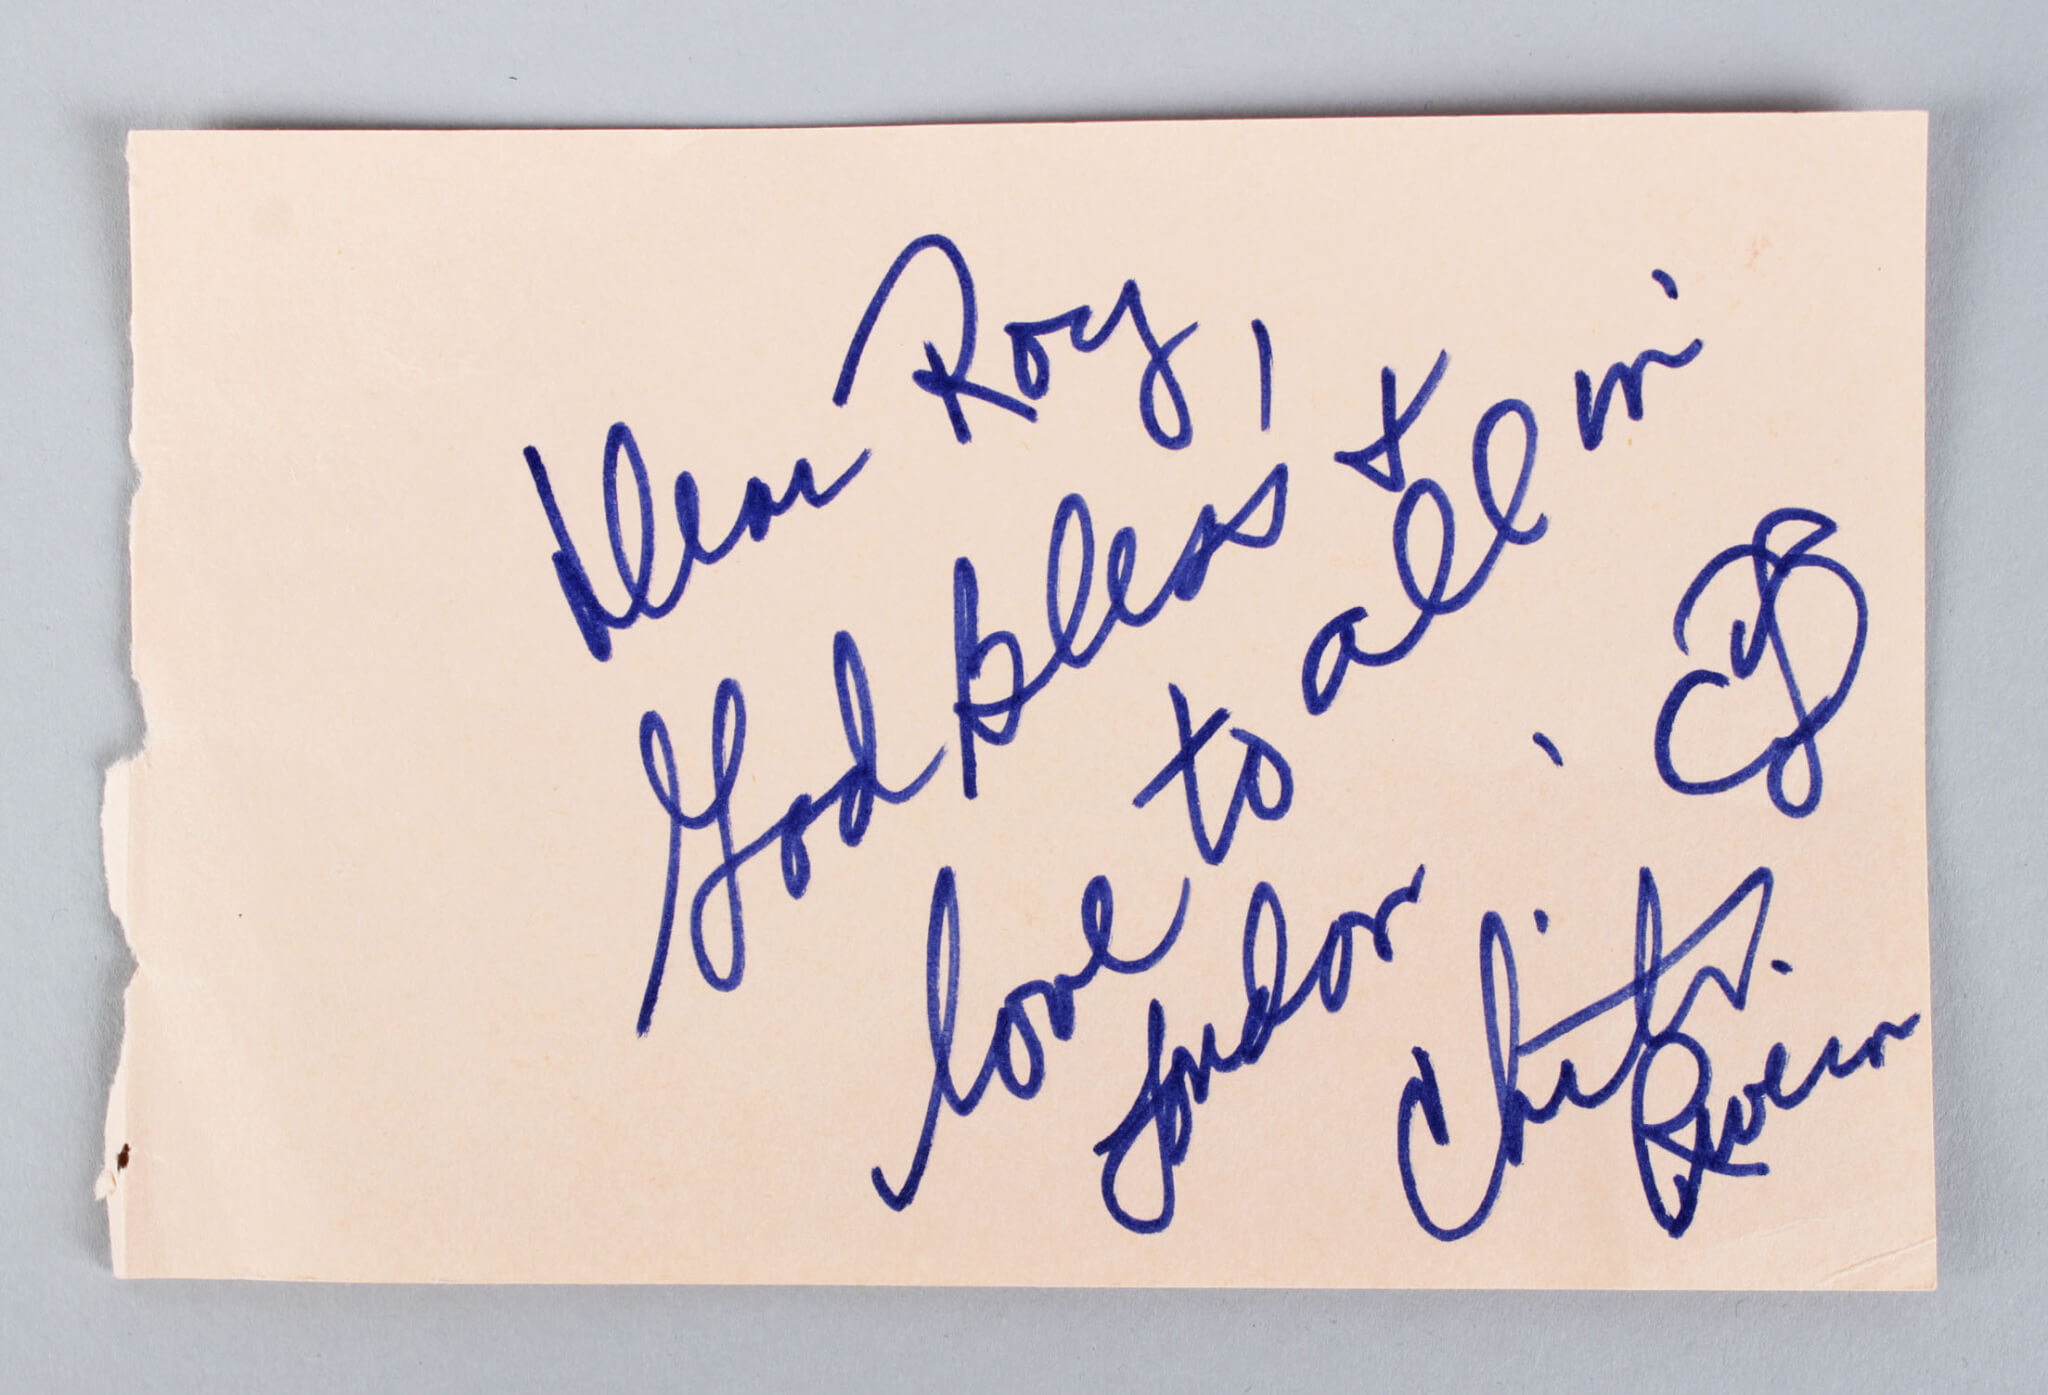 Dear Roy,
God bless &
love to all in
London.
Chita
Rivera